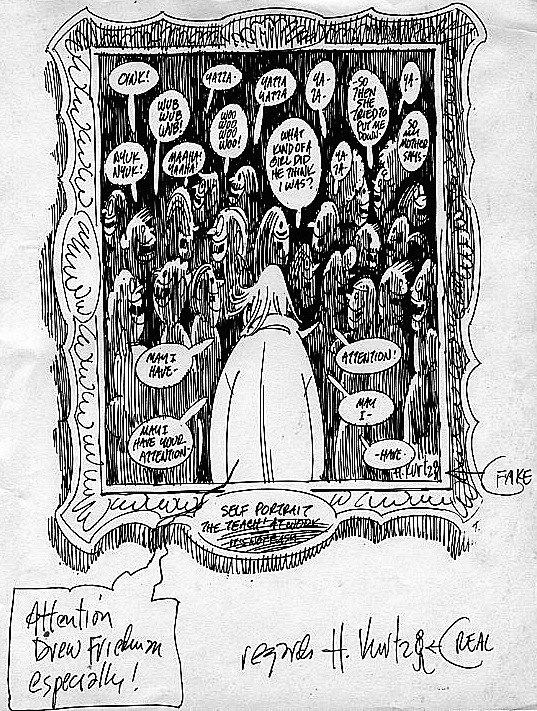 OYNK!
YATTA-
YATTA
YATTA
YA-
TA-
-SO
THEN
SHE
TRIED TO
PUT ME
DOWN-
YA-
WUB
WUB
WUB!
WOO
WOO
WOO
WOO!
WHAT
KIND OF A
GIRL DID
HE THINK
I WAS?
SO
MY
MOTHER
SAYS-
NYUK
NYUK!
MAAHA!
YAAHA!
YA
TA-
MAY I
HAVE-
ATTENTION!
MAY
I-
MAY I
HAVE YOUR
ATTENTION-
-HAVE-
H. Kurtz
FAKE
SELF PORTRAIT
THE TEACH! AT WORK
Attention
Drew Friedman
especially!
regards H. Kurtz
REAL